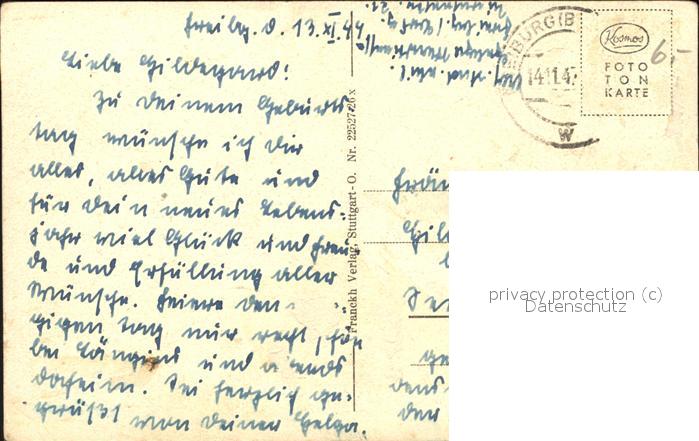 Freibg. d. 13. XI. 44
Liebe Hildegard!
Zu Deinem Geburts
tag wünsche ich Dir
alles, alles Gute und
für Dein neues Lebens-
jahr viel Glück und Freu
de und Erfüllung aller
Wünsche. Feiere den
Tag nur recht,
bei und abends
daheim. Sei herzlich ge-
grüßt von Deiner Helga.
Franckh Verlag, Stuttgart-O. Nr. 22527/26 x
BURG (B
14.11.4
W
Kosmos
FOTO
TON
KARTE
6,-
Fräu
Hil
privacy protection (c)
Datenschutz